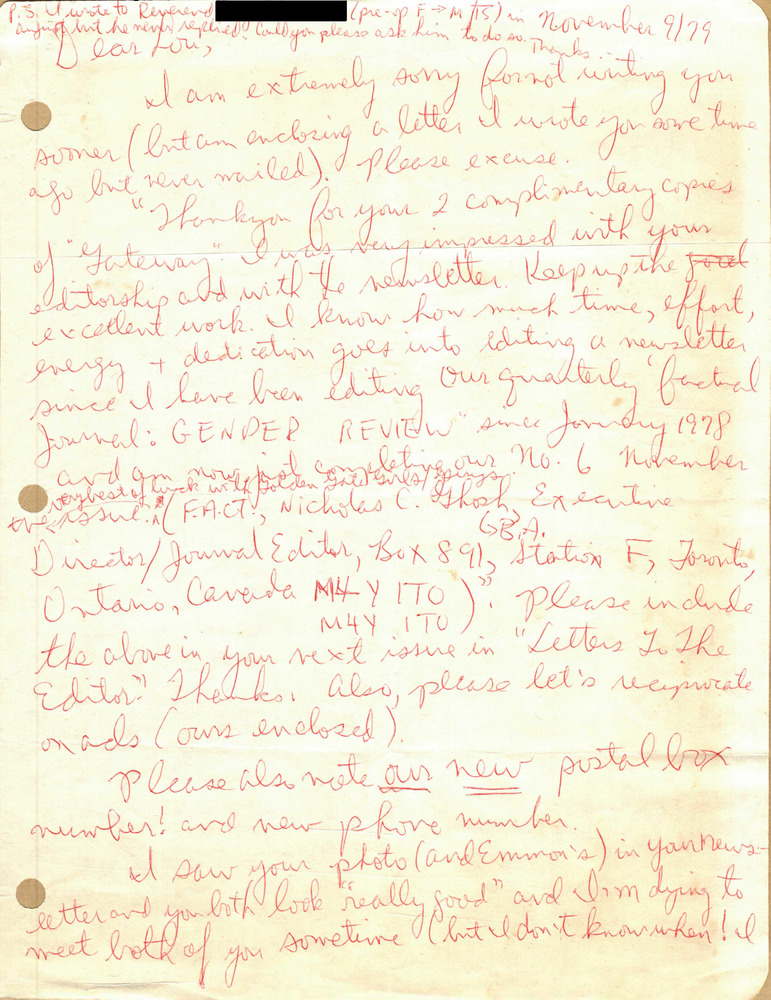 P.S. I wrote to Reverend (pre-op F→M TS) in
August but he never replied? Could you please ask him to do so. Thanks.
November 9/79
Dear Lou,
I am extremely sorry for not writing you
sooner (but am enclosing a letter I wrote you some time
ago but never mailed). Please excuse.
"Thankyou for your 2 complimentary copies
of "Gateway". I was very impressed with your
editorship and with the newsletter. Keep up the good
excellent work. I know how much time, effort,
energy + dedication goes into editing a newsletter
since I have been editing our quarterly factual
journal: GENDER REVIEW" since January 1978
and am now just completing our No. 6 November
issue. (F.A.C.T., Nicholas C. Ghosh, Executive
very best of luck with Golden Gate Girls/Guys.
B.A.
Director/Journal Editor, Box 891, Station F, Toronto,
Ontario, Canada M4Y 1T0
M4Y 1T0)". Please include
the above in your next issue in "Letters To The
Editor". Thanks. Also, please let's reciprocate
on ads (ours enclosed).
Please also note our new postal box
number! and new phone number.
I saw your photo (and Emmon's) in your news-
letter and you both look "really good" and I'm dying to
meet both of you sometime (but I don't know when! I